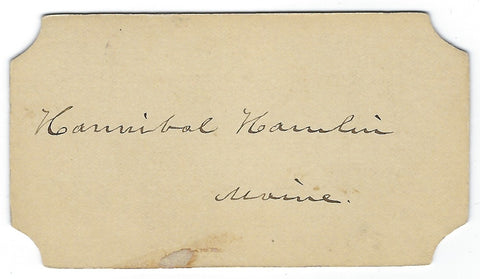 Hannibal Hamlin
Maine.